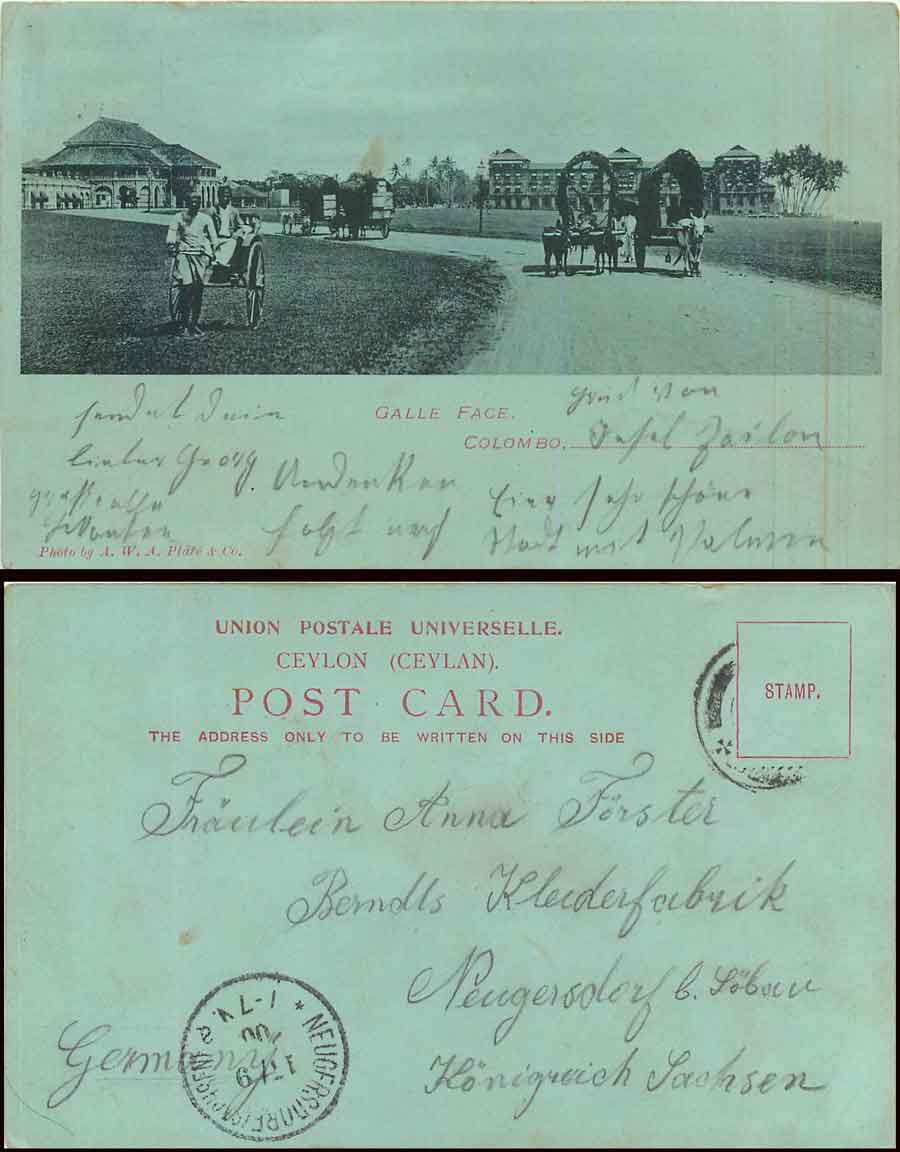 GALLE FACE.
COLOMBO.
Gruß von
Insel Zeilon
Eine sehr schöne
Stadt mit Palmen
sendet Dein
lieber Georg
Andenken
folgt nach
Photo by A. W. A. Plâté & Co.
UNION POSTALE UNIVERSELLE.
CEYLON (CEYLAN).
POST CARD.
THE ADDRESS ONLY TO BE WRITTEN ON THIS SIDE
STAMP.
Fräulein Anna Förster
Berndts Kleiderfabrik
Neugersdorf b. Löbau
Königreich Sachsen
Germany
NEUGERSDORF (SACHSEN)